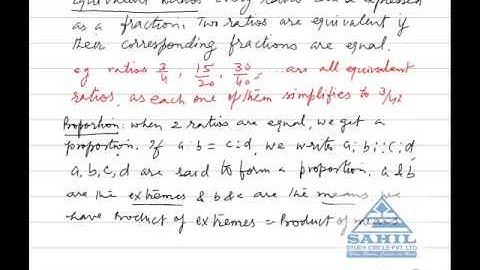 Equivalent Ratios Every Ratio can be expressed
as a fraction. Two ratios are equivalent if
their corresponding fractions are equal.
eg ratios 3/4, 15/20, 30/40, ... are all equivalent
ratios, as each one of them simplifies to 3/4
Proportion: when 2 ratios are equal, we get a
proportion. If a:b = c:d, we write a:b::c:d
a, b, c, d are said to form a proportion. a & b
are the extremes & b & c are the means, we
have Product of extremes = Product of means
SAHIL
STUDY CIRCLE PVT. LTD.